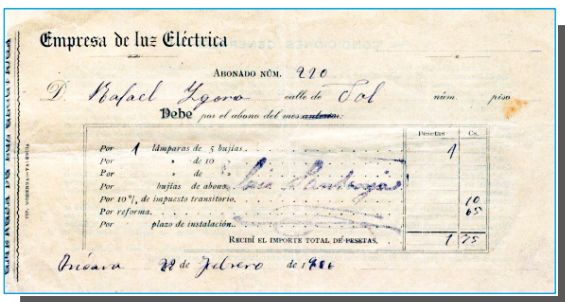 Empresa de luz Eléctrica
ABONADO NÚM. 220
D. Rafael calle de Sol núm. piso
Debe por el abono del mes anterior:
Pesetas Cs.
Por 1 lámparas de 5 bujías. 1
Por » de 10
Por » de »
Por bujías de abono.
Por 10 %, de impuesto transitorio. 10
Por reforma. 65
Por plazo de instalación.
RECIBÍ EL IMPORTE TOTAL DE PESETAS. 1 75
22 de Febrero de